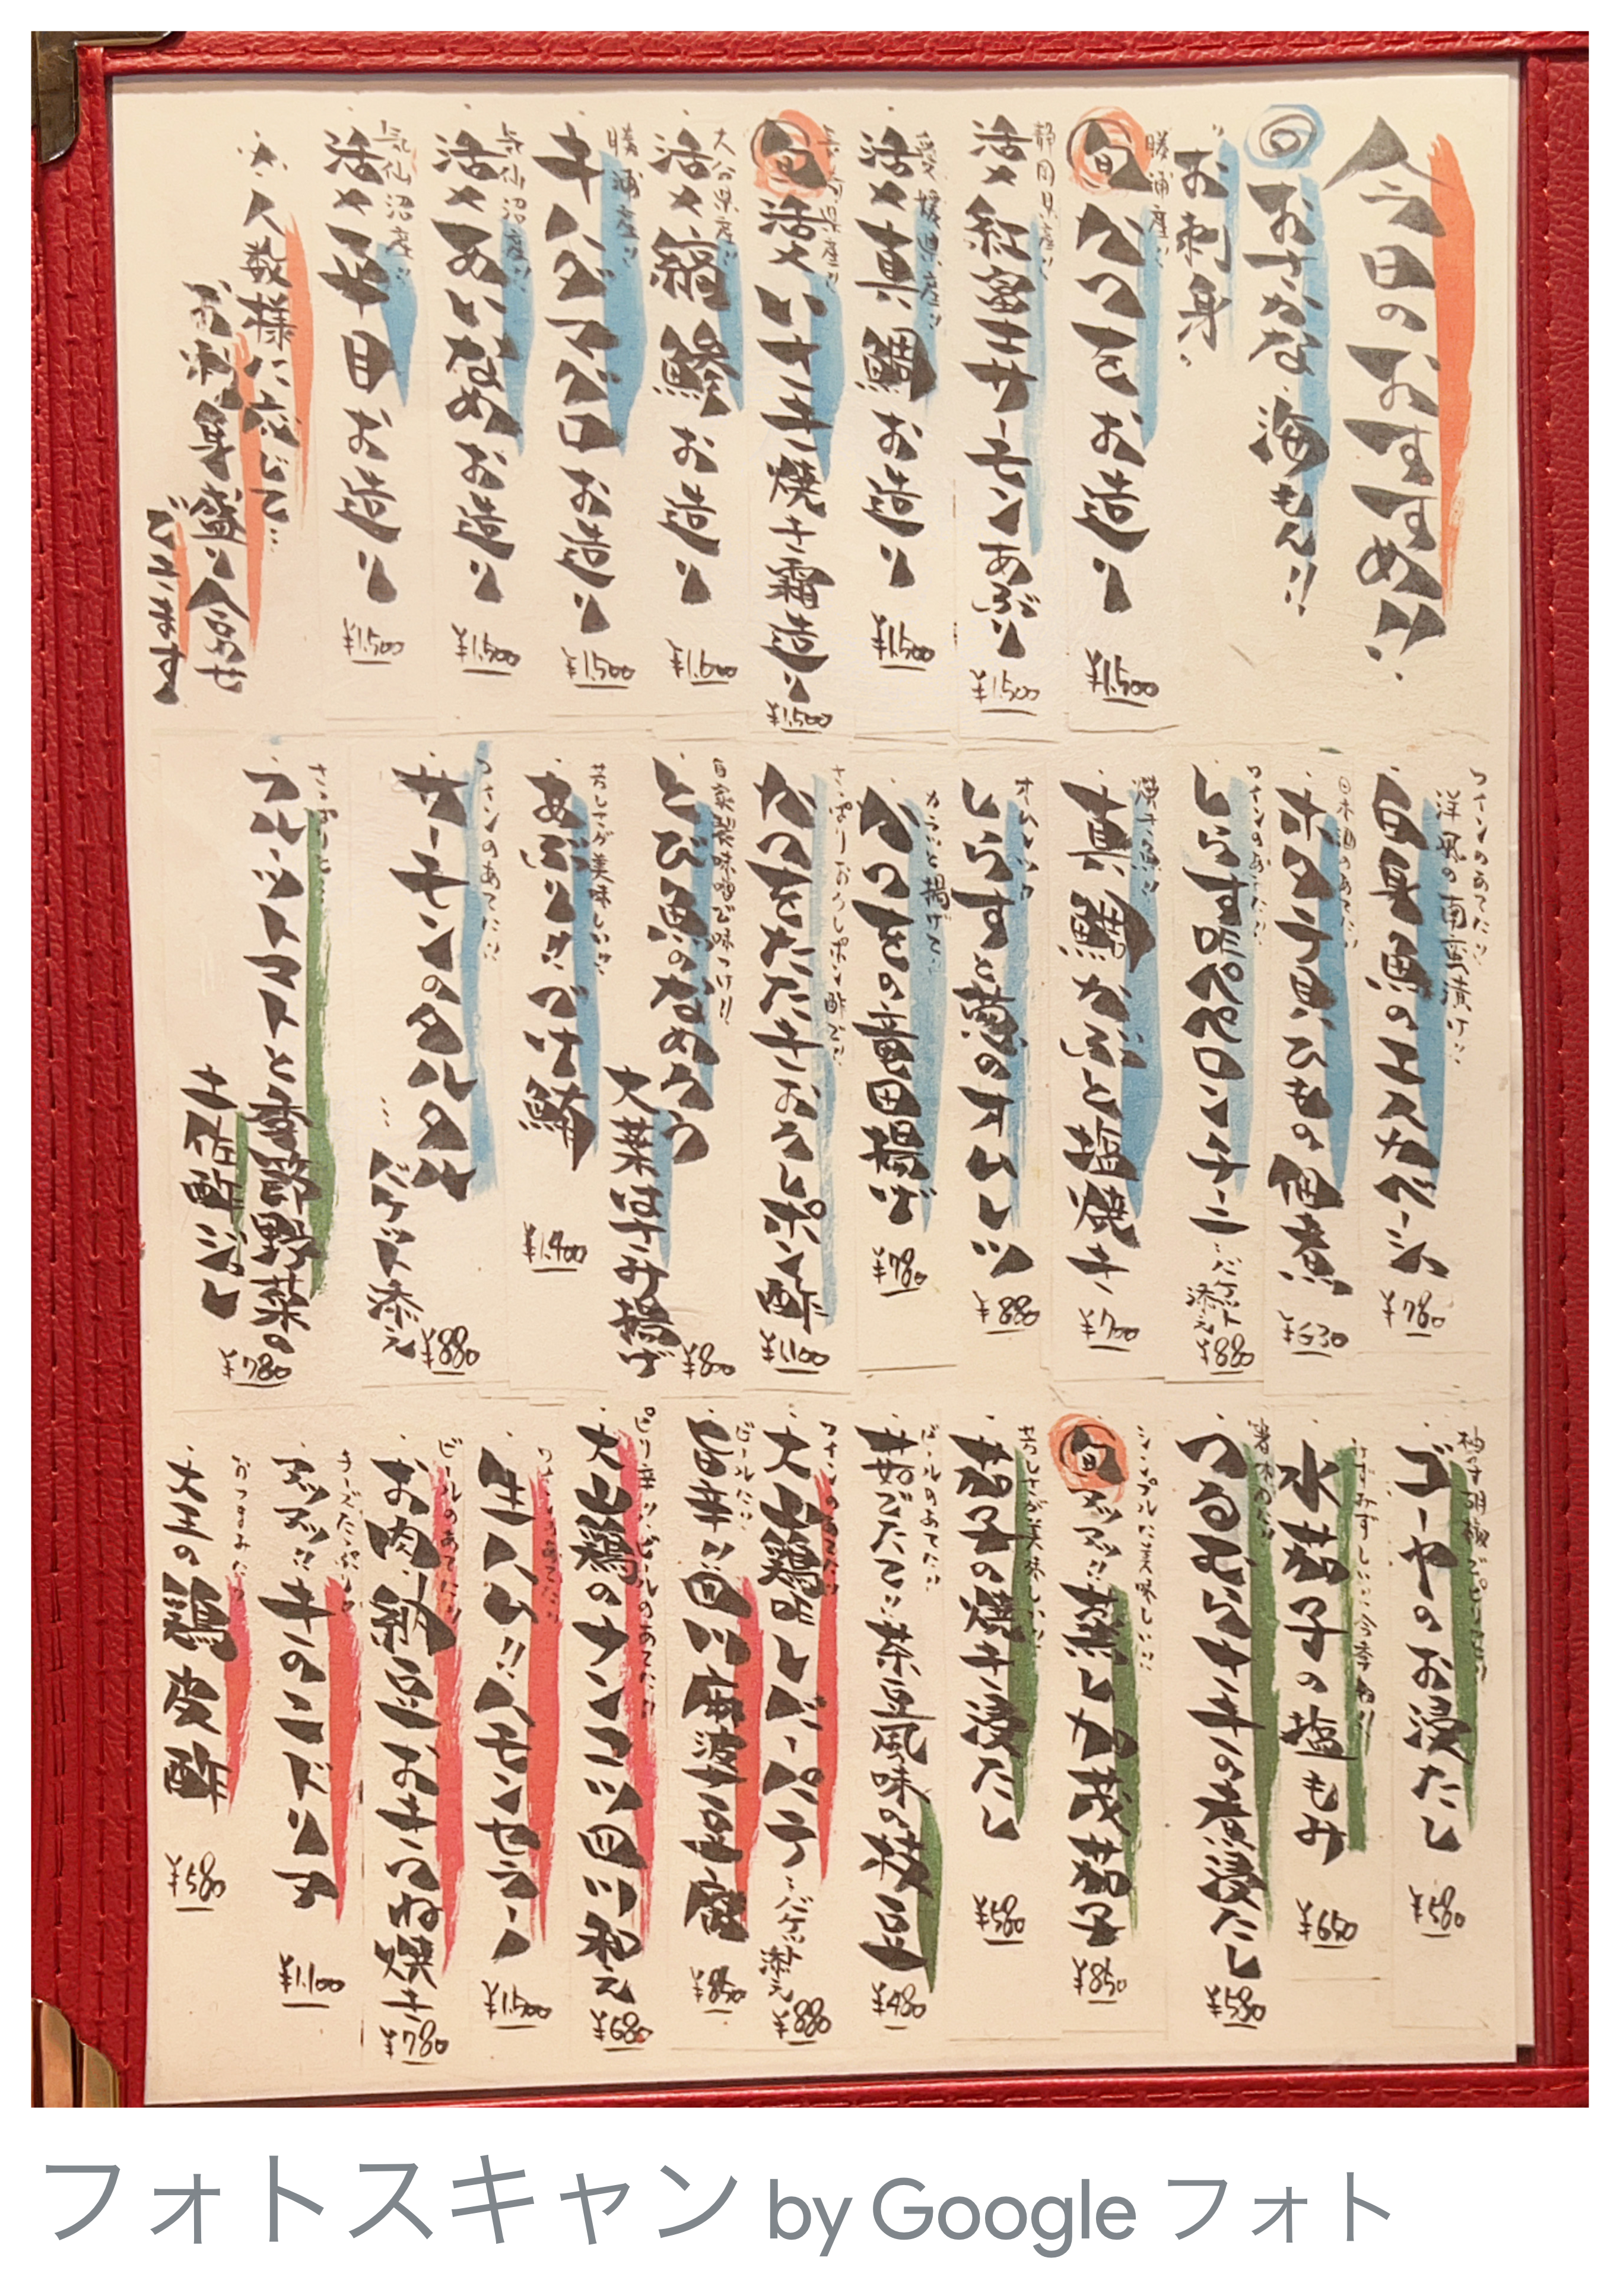 今日のおすすめ!!
おさかな 海もん!!
お刺身
勝浦産!!
旬 かつを お造り
¥1,500
静岡県産!!
活〆 紅富士サーモン あぶり
¥1,500
愛媛県産!!
活〆 真鯛 お造り
¥1,500
長崎県産!!
旬 活〆 いさき 焼き霜造り
¥1,500
大分県産!!
活〆 縞鯵 お造り
¥1,600
勝浦産!!
キハダマグロ お造り
¥1,500
気仙沼産!!
活〆 あいなめ お造り
¥1,500
気仙沼産!!
活〆 平目 お造り
¥1,500
人数様に応じて…
お刺身盛り合わせ
ございます
ワインのあてに!!
洋風の南蛮漬け!!
白身魚のエスカベーシュ
¥780
日本酒のあてに!!
ホタテ貝ひもの佃煮
¥630
ワインのあてに!!
しらすdeペペロンチーニ
…バゲット
添え
¥880
焼き魚!!
真鯛かぶと塩焼き
¥700
しらすと葱のオムレツ
¥880
カラッと揚げて!!
かつをの竜田揚げ
¥780
さっぱりおろしポン酢で!!
かつをたたき おろしポン酢
¥1,100
自家製味噌で味つけ!!
とび魚のなめろう
大葉はさみ揚げ
¥800
芳しさが美味しい!!
あぶりしめ鯖
¥1,400
ワインのあてに!!
サーモンのタルタル
…バゲット添え
¥880
さっぱりと…
フルーツトマトと季節野菜の
土佐酢ジュレ
¥780
柚子胡椒でピリッと!!
ゴーヤのお浸たし
¥580
みずみずしい!!今季初!!
水茄子の塩もみ
¥650
つるむらさきの煮浸たし
¥580
シンプルに美味しい!!
旬 アッアッ!!蒸し加茂茄子
¥850
芳しさが美味しい!!
茄子の焼き浸たし
¥580
ビールのあてに!!
茹でたて!!茶豆風味の枝豆
¥480
ワインのあてに!!
大山鶏deレバーパテ
…バゲット
添え
¥880
ビールに!!
旨辛!!四川麻婆豆腐
¥850
ピリ辛!!ビールのあてに!!
大山鶏のナンコツ四川和え
¥680
ワインのあてに!!
生ハム!!ハモンセラーノ
¥1,500
ビールのあてに!!
お肉、納豆おきつね焼き
¥780
チーズたっぷり!!
アッアッ!!牛のニドリア
¥1,100
おつまみに!!
大王の鶏皮酢
¥580
フォトスキャン by Google フォト